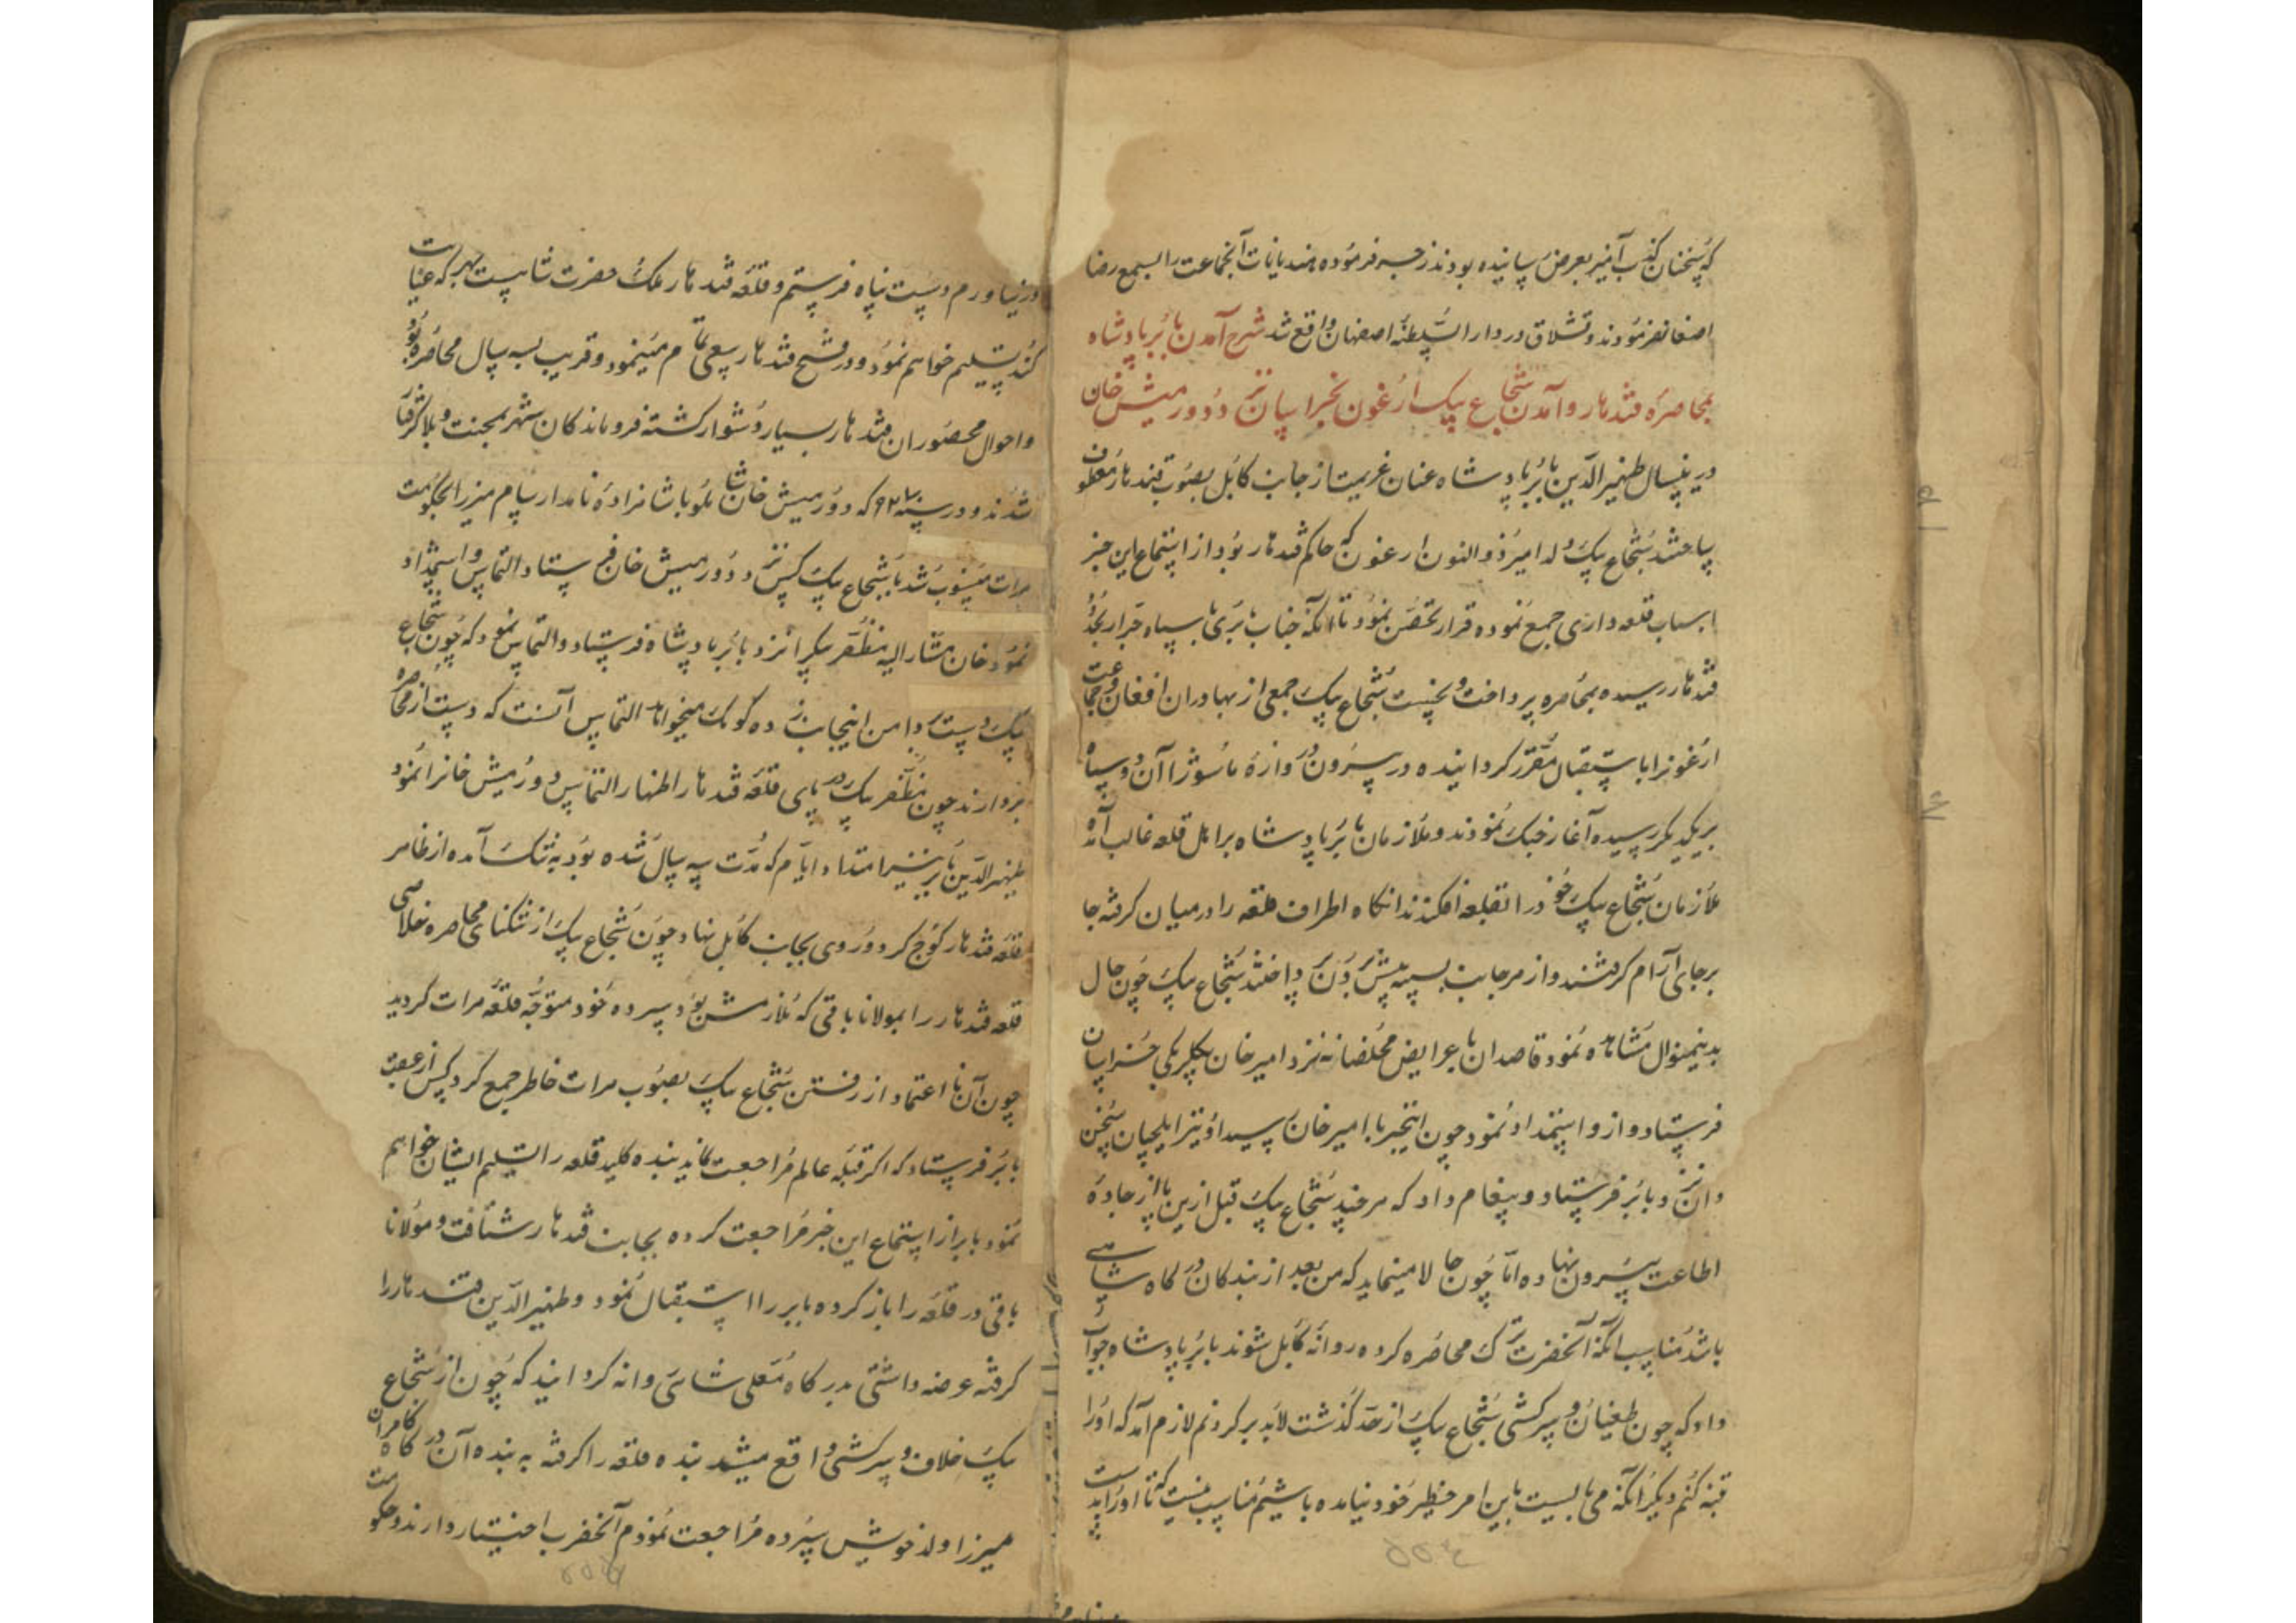 که سخنان کذب آمیز بعرض رسانیده بودند زجر فرموده هذیانات آنجماعت را بسمع رضا
اصغا نفرمودند و قشلاق در دار السلطنه اصفهان واقع شد شرح آمدن بابر پادشاه
بمحاصره قندهار و آمدن شجاع بیک ارغون بخراسان نزد دورمیش خان
درینسال ظهیر الدین بابر پادشاه عنان عزیمت از جانب کابل بصوب قندهار معطوف
ساخته شجاع بیک ولد امیر ذو النون ارغون که حاکم قندهار بود از استماع این خبر
اسباب قلعه داری جمع نموده قرار تحصن نمود تا آنکه جناب بابری با سپاه جرار بحدود
قندهار رسیده بمحاصره پرداخت و نخست شجاع بیک جمعی از بهادران افغان و جماعت
ارغونرا باستقبال مقرر گردانیده در بیرون دروازه ماشور آن دو سپاه
بریکدیکر رسیده آغاز جنک نمودند و ملازمان بابر پادشاه بر اهل قلعه غالب آمده
ملازمان شجاع بیک خود را بقلعه افکندند انکاه اطراف قلعه را در میان کرفته جا
برجای آرام کرفتند و از هر جانب سیبه پیش بردن پرداختند شجاع بیک چون حال
بدینمنوال مشاهده نمود قاصدان با عرایض مخلصانه نزد امیر خان بیکلربیکی خراسان
فرستاد و از و استمداد نمود چون اینخبر با امیر خان رسید او نیز ایلچیان سخن
دان نزد بابر فرستاد و پیغام داد که هر چند شجاع بیک قبل ازین پا از جاده
اطاعت بیرون نهاده اما چون حالا مینماید که من بعد از بندکان درکاه شاهی
باشد مناسب آنکه آنحضرت ترک محاصره کرده روانه کابل شوند بابر پادشاه جواب
داد که چون طغیان و سرکشی شجاع بیک از حد گذشت لابد بر کردنم لازم آمد که او را
تنبه کنم دیکر آنکه می بایست باین امر خطیر خود نیامده باشیم مناسب نیست که تا او را بدست
در نیاورم دست نپناه فرستم و قلعه قندهار ملک حضرت شاهیست بهر که عنایت
کند تسلیم خواهم نمود و در فتح قندهار سعی تمام مینمود و قریب بسه سال محاصره نمود
و احوال محصوران قندهار بسیار دشوار کشته فروماندکان شهر بمحنت و بلا کرفتار
شدند و در سنه ۹۲۷ که دورمیش خان شاملو با شاهزاده نامدار سام میرزا بحکومت
هرات منسوب شد شجاع بیک کس نزد دورمیش خان فرستاد و التماس و استمداد
نمود خان مشار الیه مظفر بیکرا نزد بابر پادشاه فرستاد و التماس نمود که چون شجاع
بیک دست بدامن اینجانب زده کومک میخواهد التماس آنست که دست از محاصره
بردارند چون مظفر بیک در پای قلعه قندهار اظهار التماس دورمیش خانرا نمود
ظهیر الدین بابر نیز امتداد ایام که مدت سه سال شده بود به تنک آمده از ظاهر
قلعه قندهار کوچ کرد و روی بجانب کابل نهاد چون شجاع بیک از تنکنای محاصره خلاصی
قلعه قندهار را بمولانا باقی که ملازمش بود سپرده خود متوجه قلعه هرات کردید
چون آن نا اعتماد از رفتن شجاع بیک بصوب هرات خاطر جمع کرد کس از عقب
بابر فرستاد که اکر قبله عالم مراجعت نماید بنده کلید قلعه را تسلیم ایشان خواهم
نمود بابر از استماع این خبر مراجعت کرده بجانب قندهار شتافت و مولانا
باقی در قلعه را باز کرده بابر را استقبال نمود و ظهیر الدین قندهار را
کرفته عرضه داشتی بدرکاه معلی شاهی روانه کردانید که چون از شجاع
بیک خلاف و سرکشی واقع میشد بنده قلعه را کرفته به بنده آن درکاه کامران
میرزا ولد خویش سپرده مراجعت نمودم آنحضرت اختیار دارند و حکومت